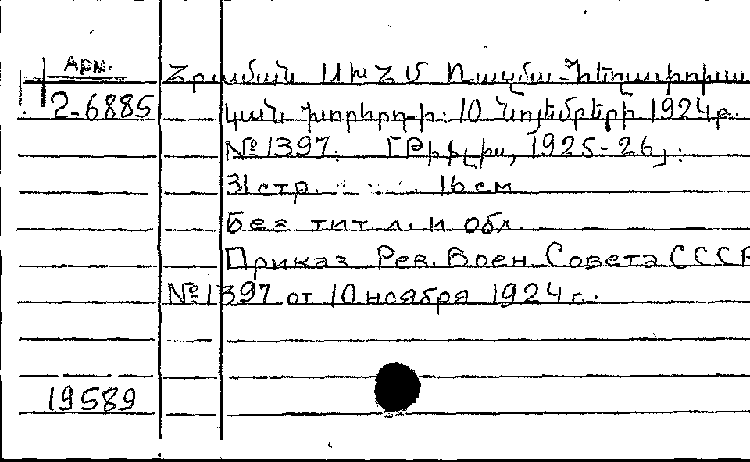 Арм.
2-6885
Հրաման ՍԽՀՄ Ռազմա-Հեղափոխա
կան խորհրդ-ի: 10 Նոյեմբերի 1924թ.
№ 1397. [Թիֆլիս, 1925-26]:
31 стр. 16 см
Без тит. л. и обл.
Приказ Рев. Воен. Совета СССР
№ 1397 от 10 ноября 1924 г.
19589